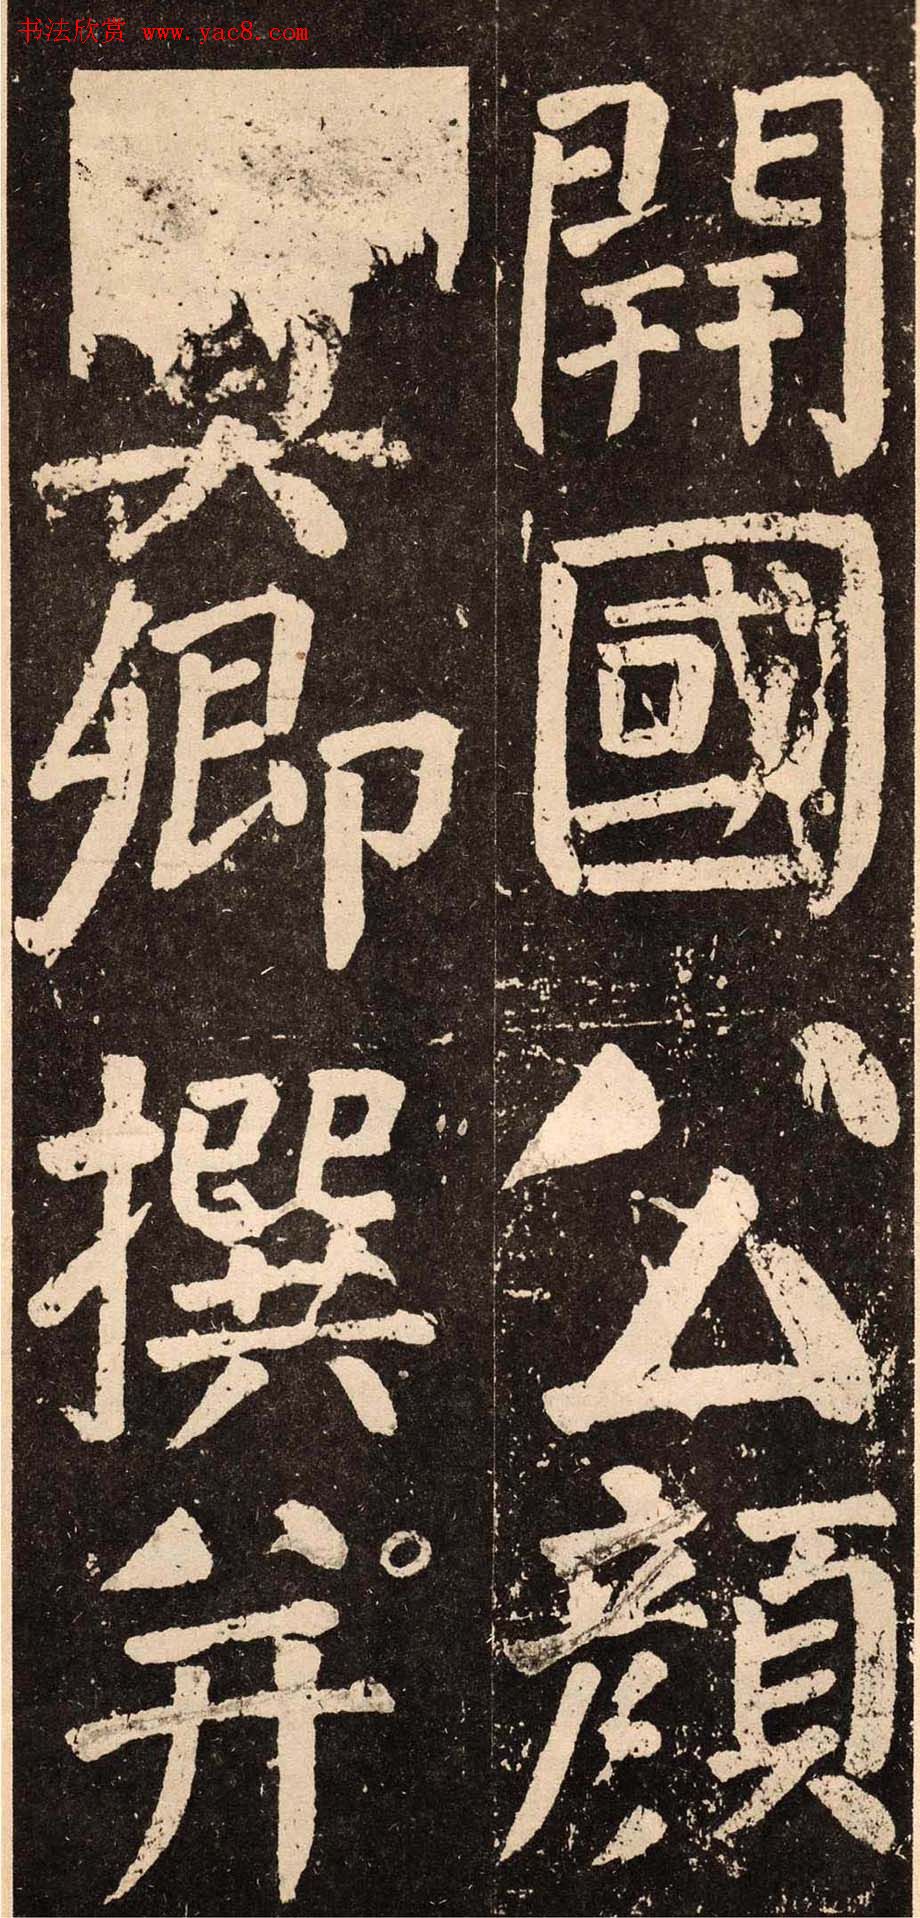 书法欣赏 www.yac8.com
開國公顏
真卿撰并